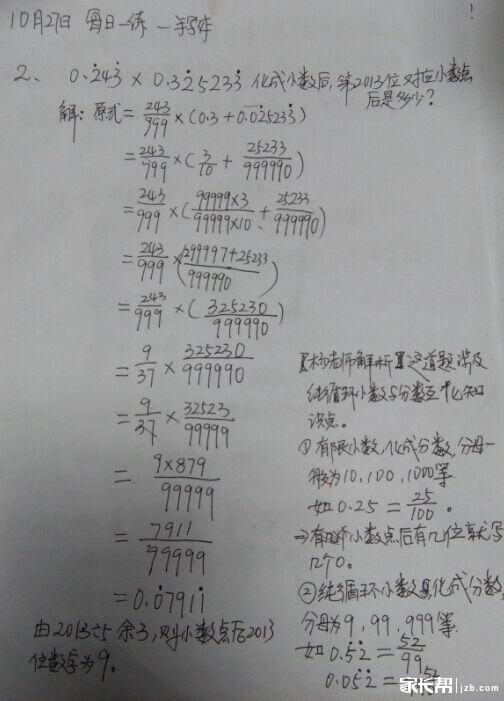 10月27日 每日一练
2、 0.2̇43̇ × 0.32̇5233̇ 化成小数后,第2013位对应小数点
后是多少?
解: 原式= 243/999 × (0.3 + 0.02̇5233̇)
= 243/999 × (3/10 + 25233/999990)
= 243/999 × (99999×3/99999×10 + 25233/999990)
= 243/999 × (299997+25233/999990)
= 243/999 × (325230/999990)
= 9/37 × 325230/999990
= 9/37 × 32523/99999
= 9×879/99999
= 7911/99999
= 0.0̇7911̇
由2013÷5 余3, 则小数点后2013
位数字为9。
老师解析 这道题涉及
纯循环小数与分数互化知
识点。
① 有限小数化成分数,分母一
般为10,100,1000等
如 0.25 = 25/100 。
⇒ 有 小数点后有几位就写
几个0。
② 纯循环小数 化成分数,
分母为9,99,999等.
如 0.5̇2̇ = 52/99
0.05̇2̇ = 52
家长帮 jzb.com